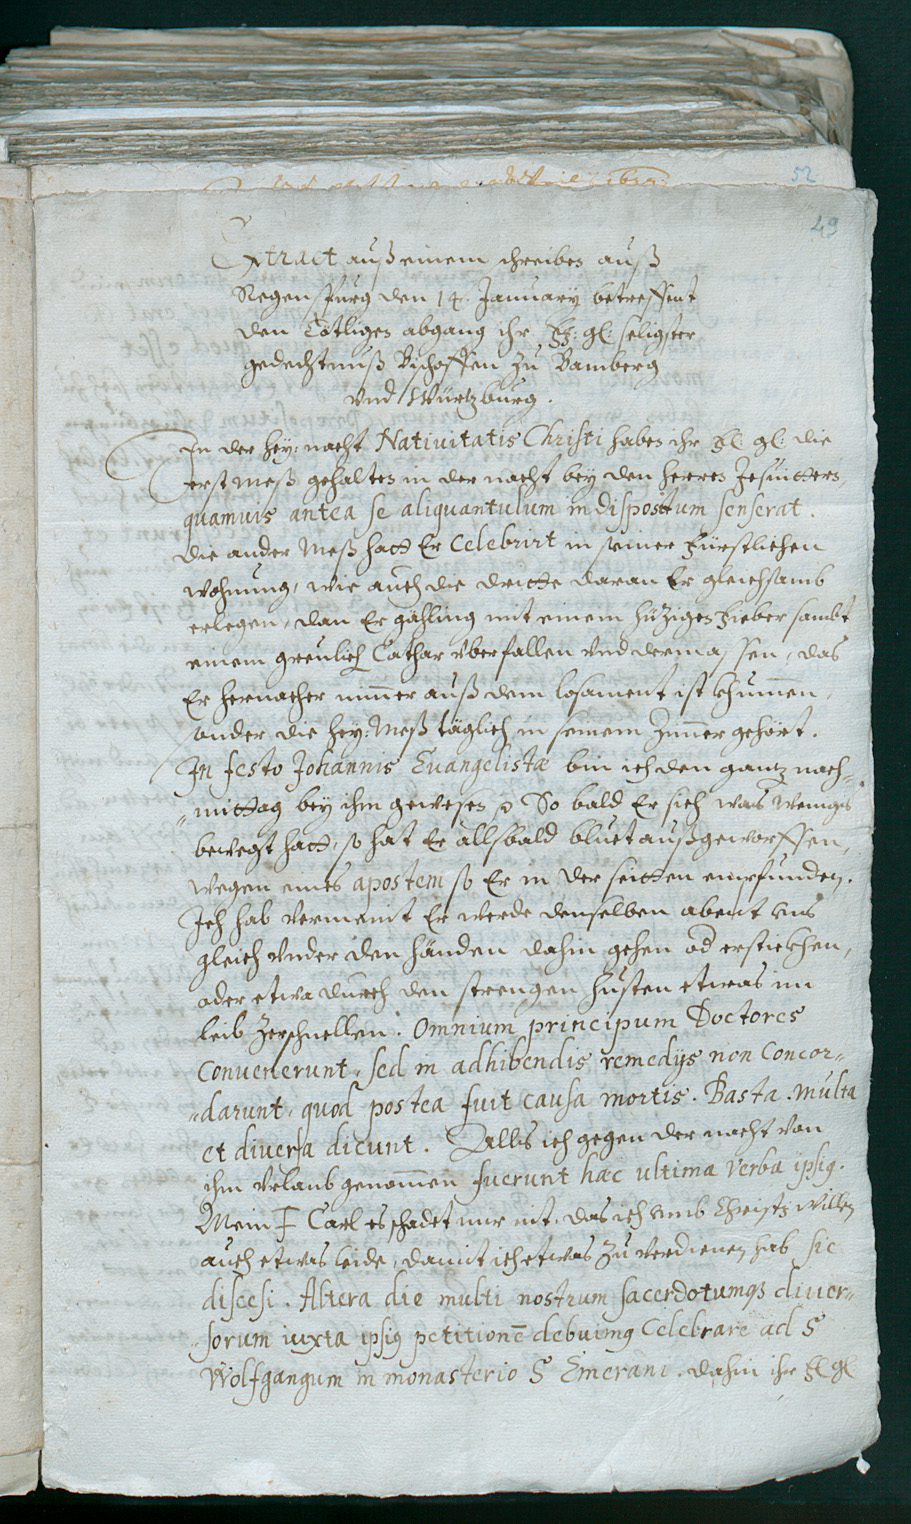 52
49
Extract auß einem schreiben auß
Regenspurg den 14. January betreffent
den Tötlichen abgang ihr fg: gl: seligster
gedechtnuß Bischoffen zu Bamberg
vnd Würtzburg.
In der hey: nacht Nativitatis Christi haben ihr fl: gl: die
erst meß gehalten in der nacht bey den herren Jesuittern,
quamuis antea se aliquantulum indispositum senserat.
die ander Meß hatt Er Celebrirt in seiner Fürstlichen
wohnung, wie auch die dritte daran Er gleichsamb
erlegen, dan Er gähling mit einem hitzigen Fieber sambt
einem greulich Cathar vberfallen vnd dermassen, das
Er hernacher nimmer auß dem losament ist khummen,
sonder die hey: Meß täglich in seinem Zimmer gehört.
In festo Johannis Euangelistæ bin ich den gantz nach-
mittag bey ihm gewesen So bald Er sich was weniges
bewegt hatt, so hat Er allsbald bluet außgeworffen,
wegen eines apostem so Er in der seitten empfunden.
Ich hab vermeint Er werde denselben abent vns
gleich vnder den händen dahin gehen od erstickhen,
oder etwa durch den strengen husten etwas im
leib zerschnellen. Omnium principum Doctores
Conuenerunt, sed in adhibendis remedijs non Concor-
darunt, quod postea fuit causa mortis. Basta. multa
et diuersa dicunt. Allß ich gegen der nacht von
ihm Vrlaub genommen fuerunt hæc ultima verba ipsig.
Mein F Carl es schadet mir nit, das ich vmb Christj willen
auch etwas leide, damit ich etwas zu verdienen hab sic
discesi. Altera die multi nostrum sacerdotumq3 diuer-
sorum iuxta ipsig petitionē debuimg Celebrare ad S
Wolfgangum in monasterio S Emerani. dahin ihr fl gl